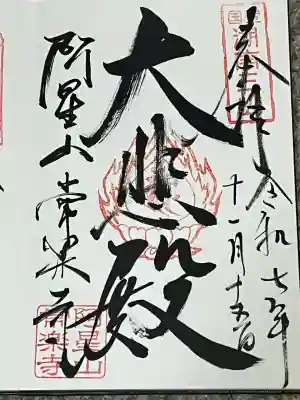 奉拝 令和七年
十一月十五日
大悲殿
阿星山 常楽寺
阿星山
常楽寺